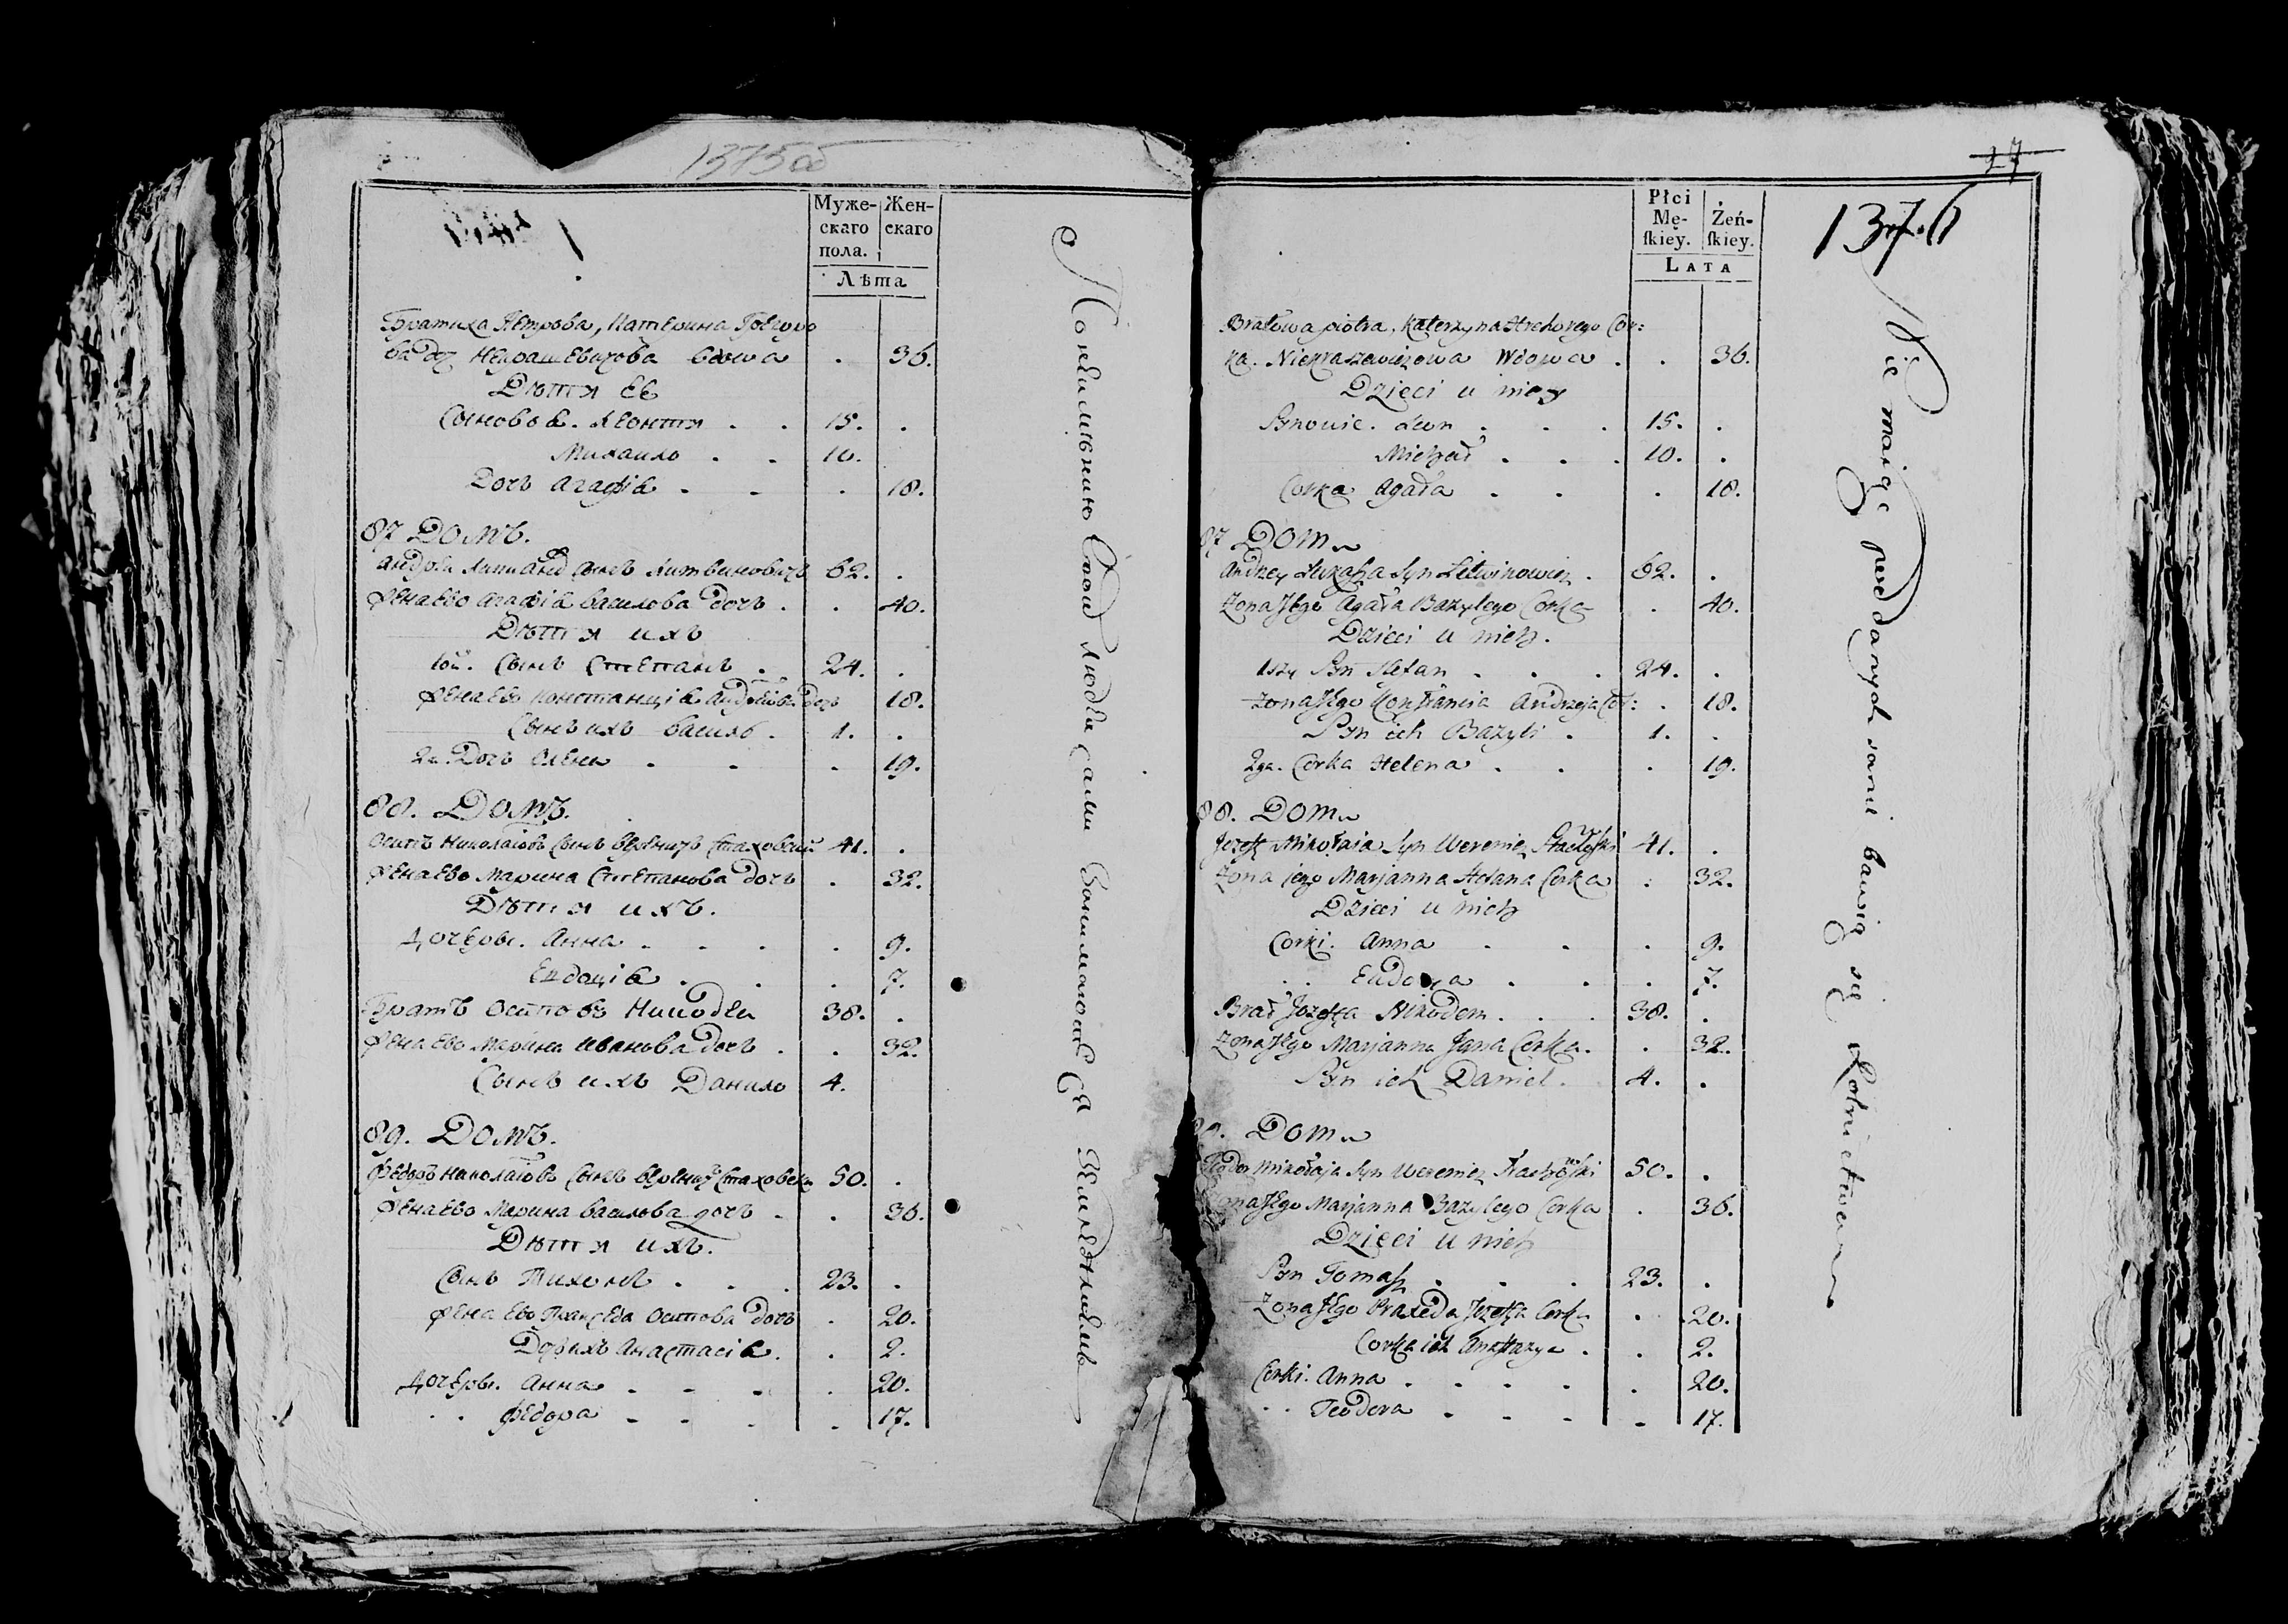 1375об
Муже-
скаго
пола.
Жен-
скаго
Лѣта
Братиха Петрова, Катерина
ва доч Некрашевичова вдова . 36.
Дѣти ее
Сыновья. Леонтий . . 15. .
Михаило . . 10.
Дочь Агафія . . . 18.
87 Домъ.
сынъ Литвиновичъ 62. .
Жена ево Агафія Василова дочь . . 40.
Дѣти ихъ
1ой. Сынъ Степанъ . 24. .
Жена ево Констанція дочь 18.
Сынъ ихъ Василь . 1. .
2я Дочь Олена . . . 19.
88. Домъ.
Осипъ Николаювъ сынъ Стаховский 41. .
Жена ево Марина Степанова дочь . 32.
Дѣти ихъ.
Дочеры. Анна . . . . 9.
Евдоція . . . 7.
Братъ Осиповъ Никодем 38. .
Жена ево Марина Иванова дочь . . 32.
Сынъ ихъ Данило 4.
89. Домъ.
Федоръ Николаювъ сынъ 50. .
Жена ево Марина Василова дочь . . 36.
Дѣти ихъ.
Сынъ Тихонъ . . . 23. .
Жена ево Осипова дочь . 20.
Анастасія . . 2.
Дочеры. Анна . . . . 20.
. . Федора . . . . 17.
люди сами
27
1376
Płci
Mę-
ſkiey.
Żeń-
ſkiey.
LATA
Bratowa piotra, Katerzyna Cór:
ka. Niekraszewiczowa Wdowa . . 36.
Dzieci u niey
Synowie. Leon . . . 15. .
Michał . . . 10. .
Corka Agata . . . 18.
87 Dom
Andrzey Łukasza Syn Litwinowicz . 62. .
Zona Jego Agata Bazylego Corka . 40.
Dzieci u nich.
1szy Syn Stefan . . . 24. .
Zona Jego Konstancia Andrzeja Cór: . 18.
Syn ich Bazyli . 1. .
2ga. Corka Helena . . . 19.
88. Dom
Jozef Mikołaia Syn Weremicz Stachowski 41. .
Zona jego Marjanna Stefana Corka . 32.
Dzieci u nich
Corki. Anna . . . 9.
. . Eudoxia . . . 7.
Brat Jozefa Nikodem . . . 38. .
Zona Jego Marjanna Jana Corka. . 32.
Syn ich Daniel . 4. .
Dom
Mikołaja Syn Weremicz Stachowski 50. .
Jego Marjanna Bazylego Corka . 36.
Dzieci u nich
Syn Tomasz . . . 23. .
Zona Jego Praxeda Jozefa Corka . 20.
Corka ich Anastazya . . 2.
Corki. Anna . . . . . 20.
. . Teodora . . . . 17.
Nie maiąc poddanych sami bawią się Rolnictwem